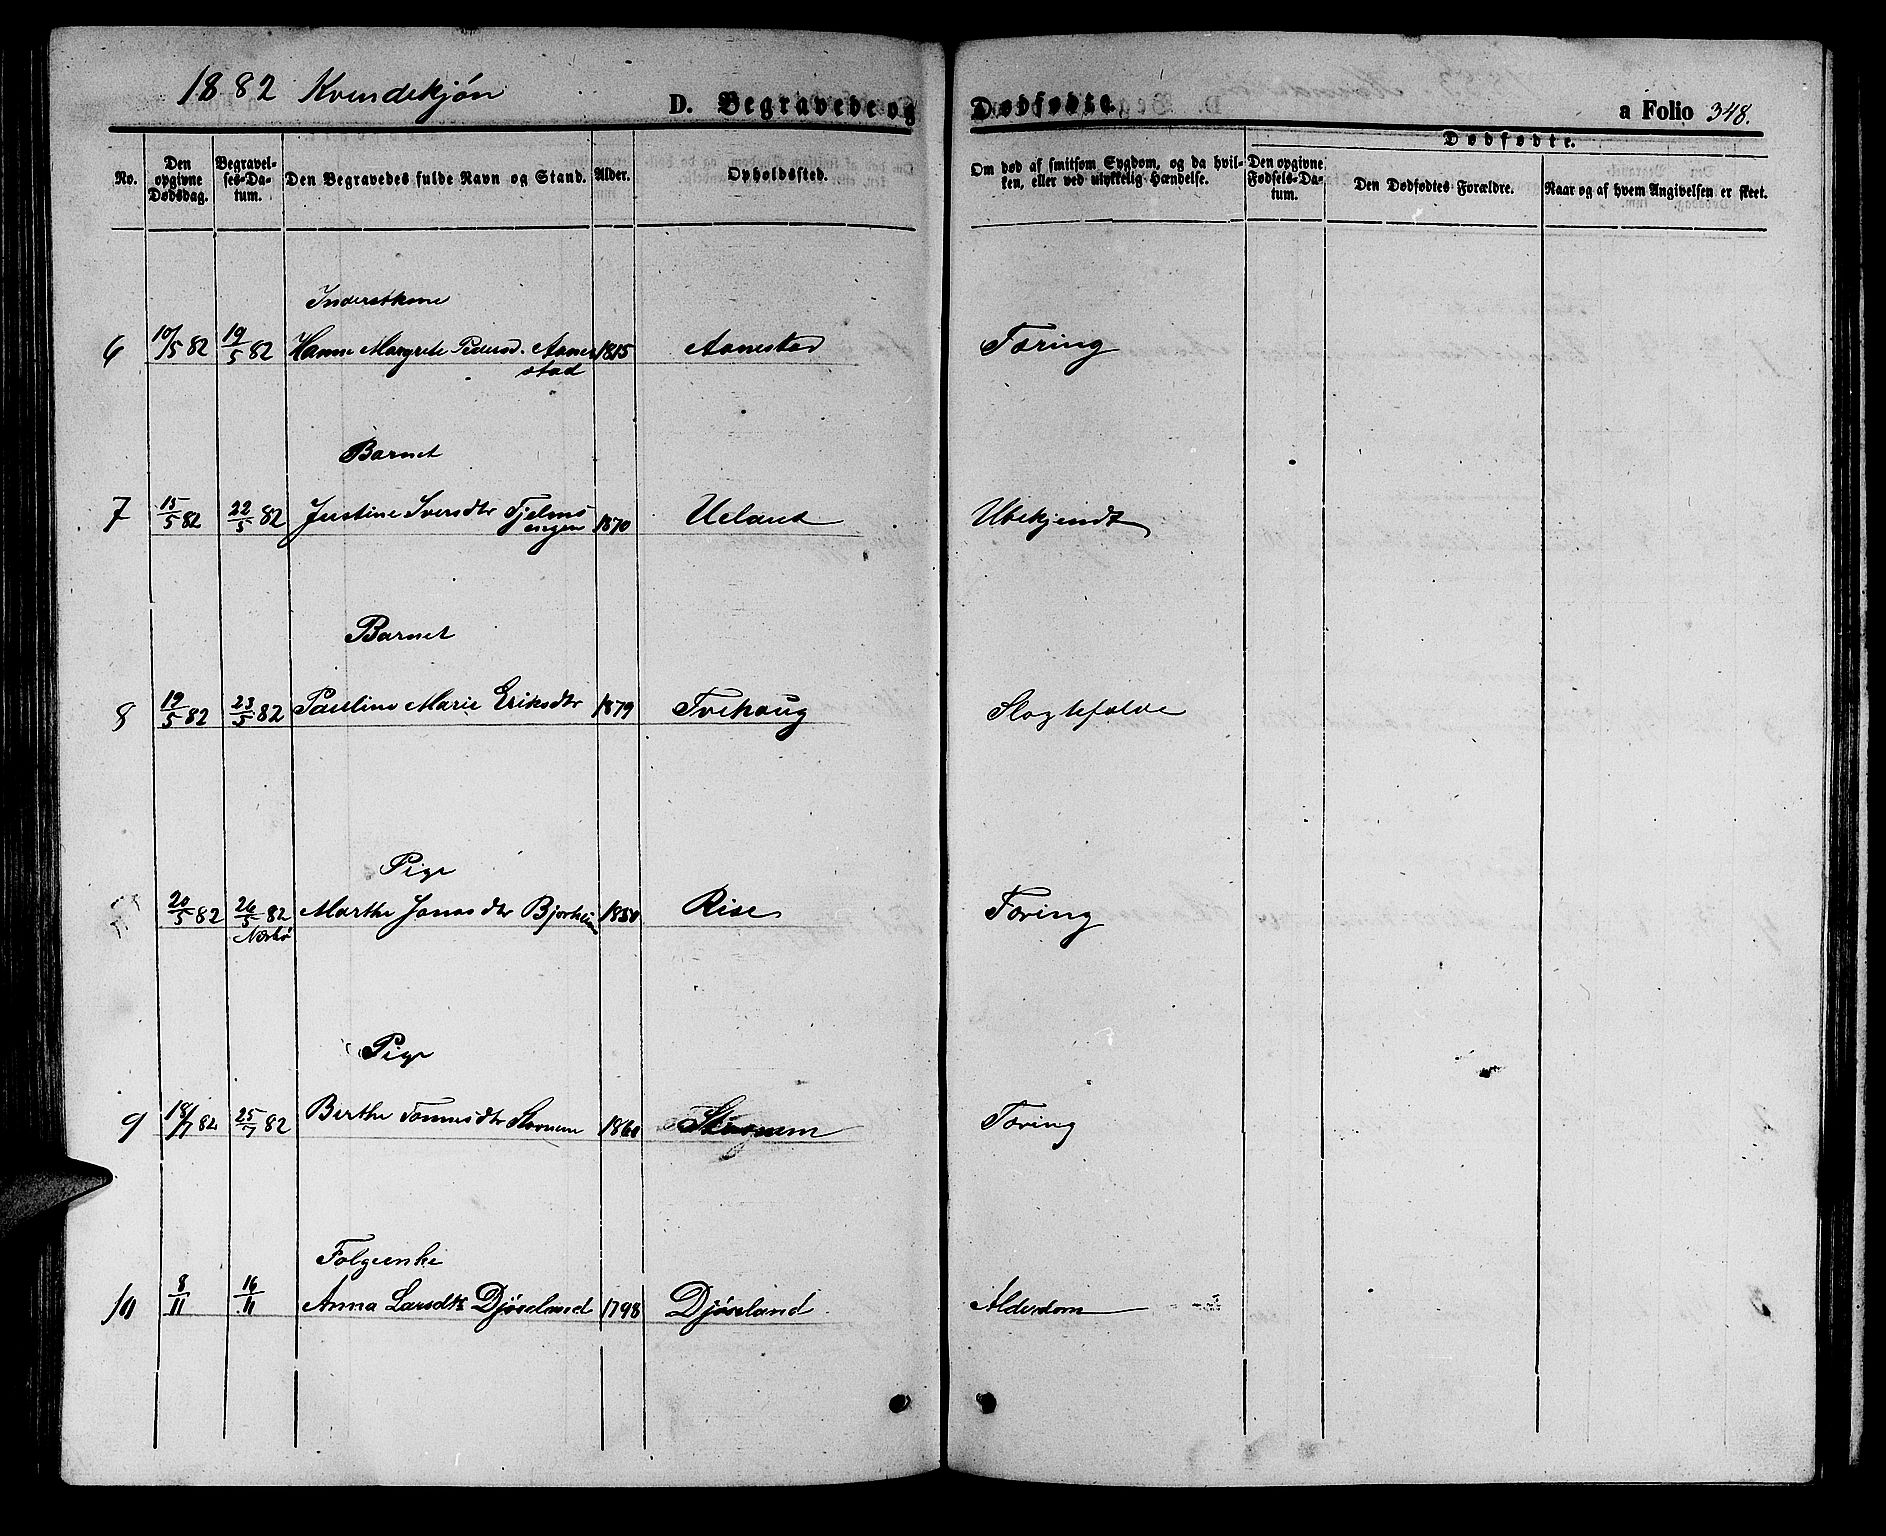 1882 Kvindekjøn
D. Begravede og Dødfødte. a Folio 348.
Dødfødte.
No.
Den opgivne Dødsdag.
Begravelses-Datum.
Den Begravedes fulde Navn og Stand.
Alder.
Opholdssted.
Om død af smitsom Sygdom, og da hvilken, eller ved ulykkelig Hændelse.
Den opgivne Fødsels-Datum.
Den Dødfødtes Forældre.
Naar og af hvem Angivelsen er skeet.
Inderstkone
6 10/5 82 19/5 82 Hanne Margrete Pedersd. Aanestad 1815 Aanestad Tæring
Barnet
7 15/5 82 22/5 82 Justine Iversdtr Tjelmsengen 1870 Ueland Ubekjendt
Barnet
8 19/5 82 23/5 82 Pauline Marie Eriksdtr 1879 Tvihaug
Pige
20/5 82 26/5 82 Marthe Jonasdtr 1850 Rise Tæring
Nærbø
Pige
9 18/7 82 25/7 82 Berthe Tønnesdtr 1860 Tæring
Følgeenke
10 8/11 16/11 Anna Larsdtr Djøseland 1798 Djøseland Alderdom